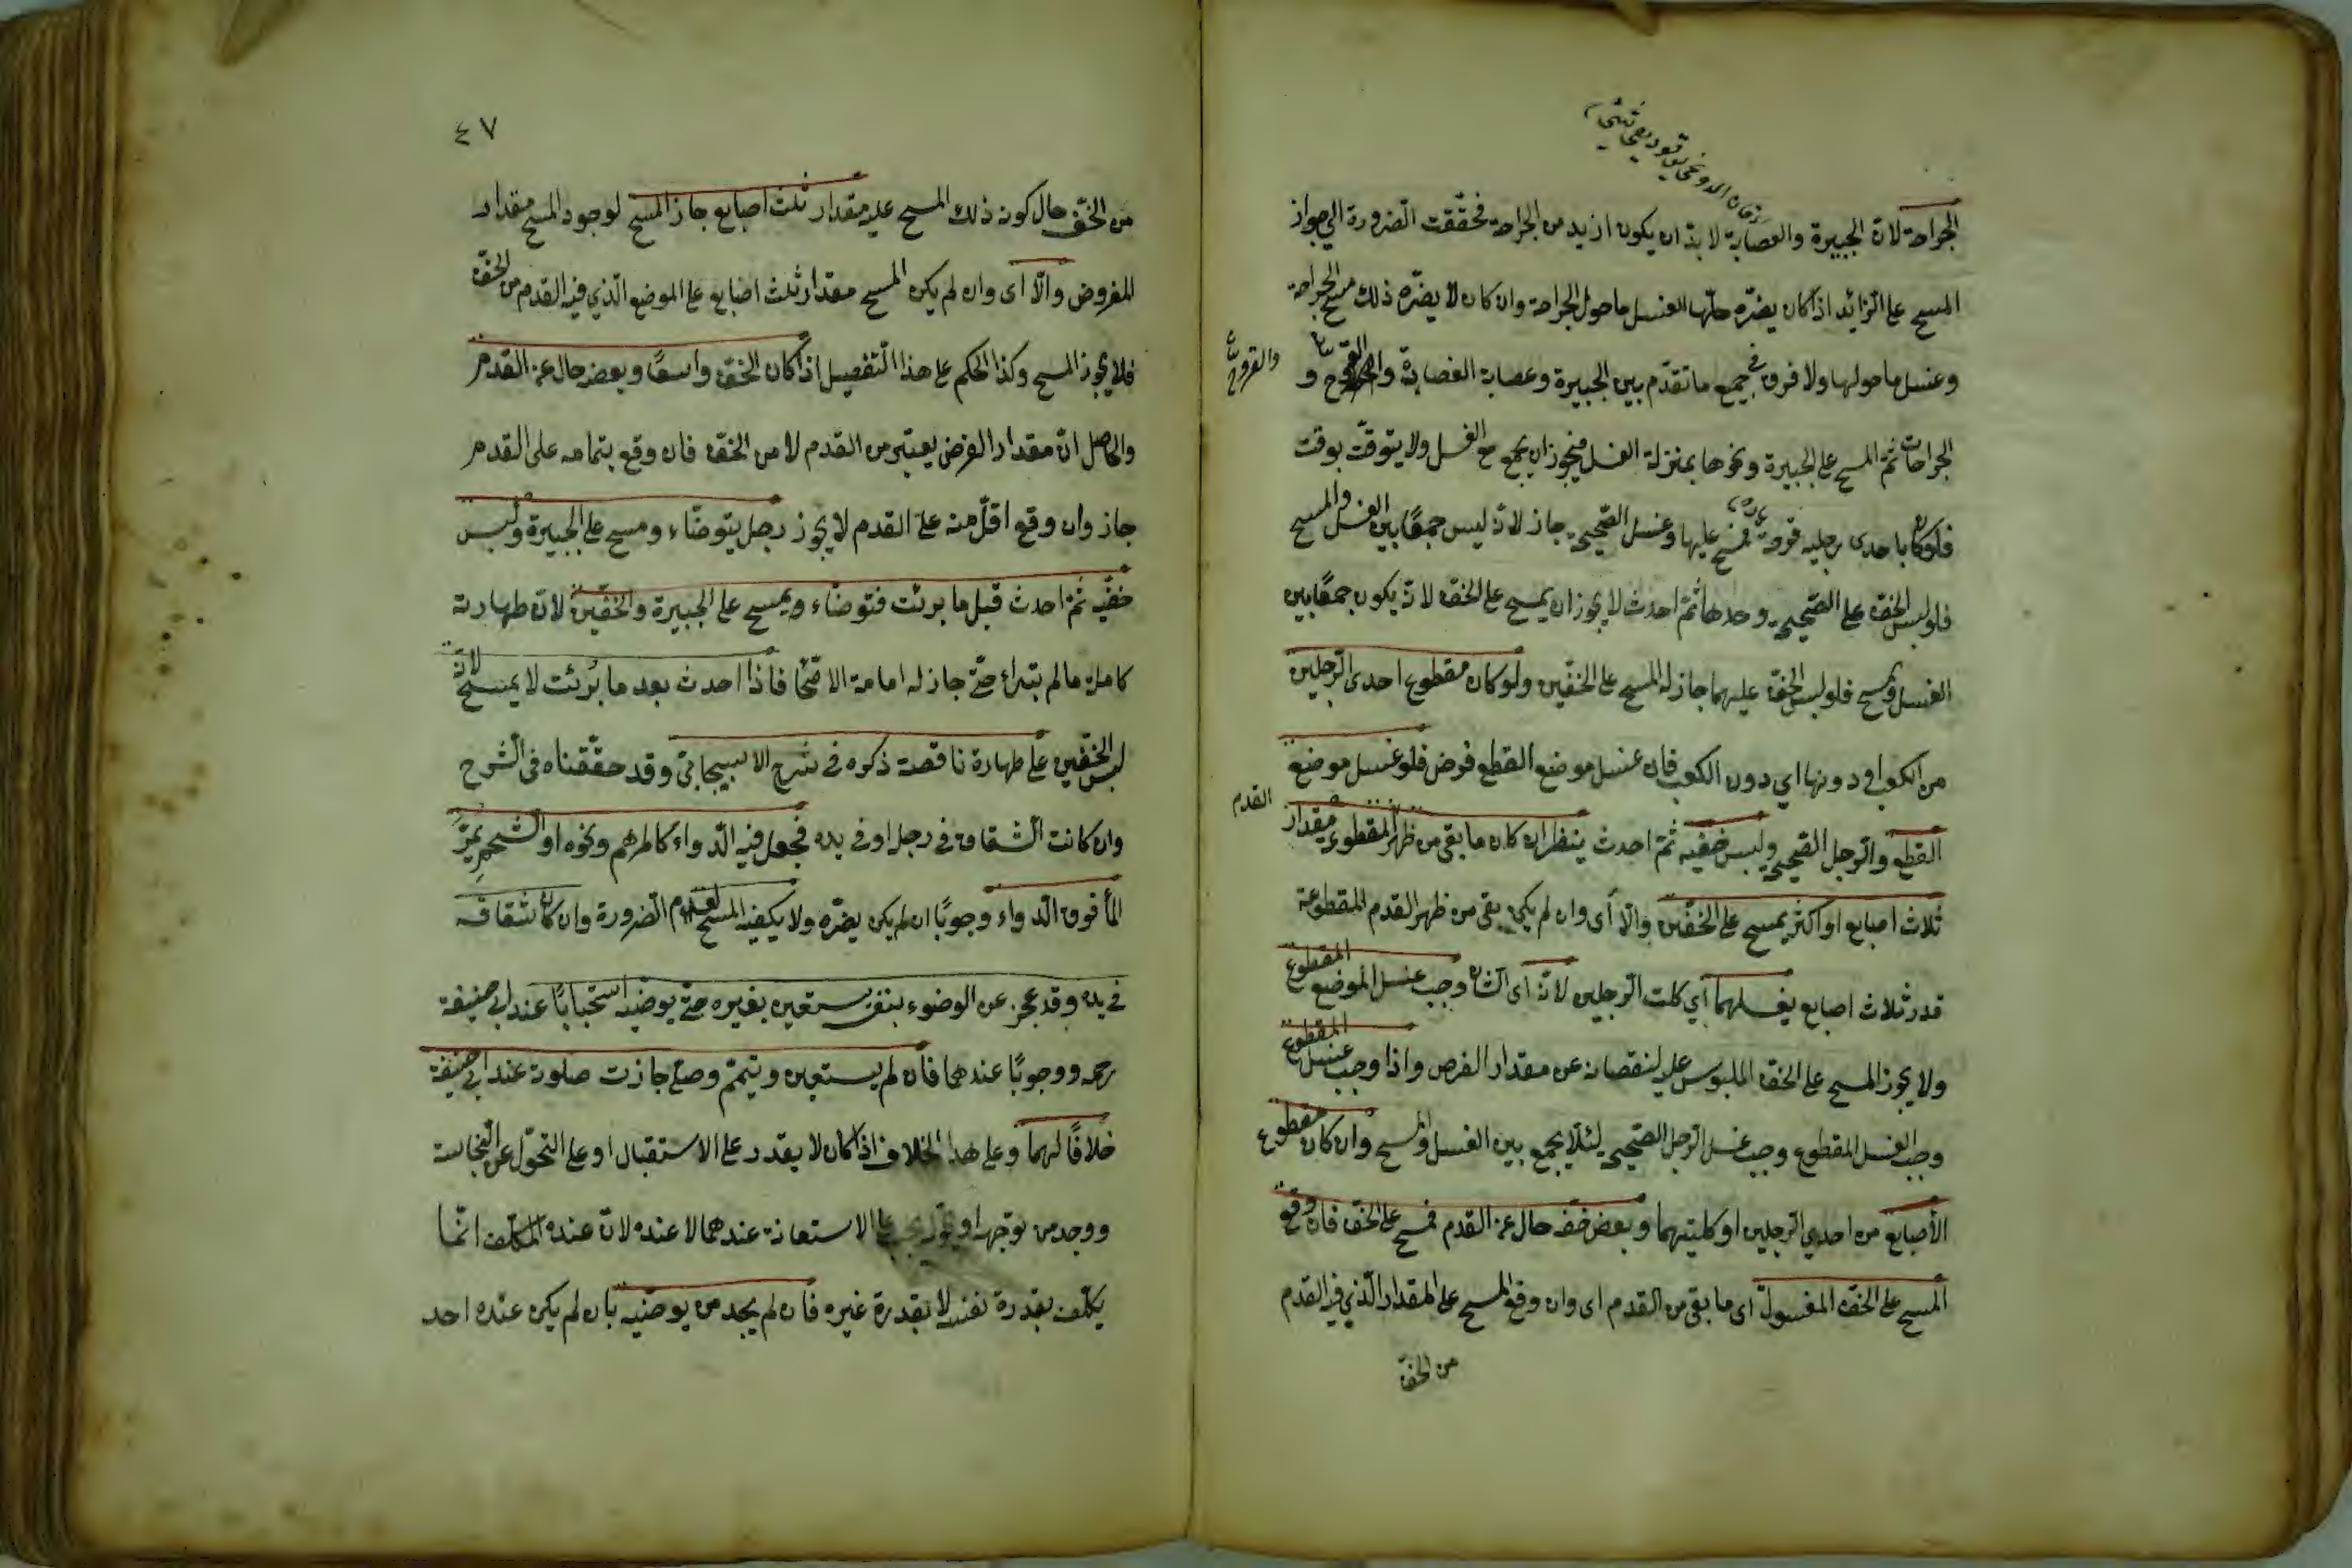 الجراحة لانّ الجبيرة والعصابة لا بدّ ان يكون ازيد من الجراحة فتحققت الضرورة الى جواز
المسح على الزائد اذا كان يضرّه حلّها لغسل ما حول الجراحة وان كان لا يضرّه ذلك مسح الجراحة
وغسل ما حولها ولا فرق فى جميع ما تقدّم بين الجبيرة وعصابة الفصادة و
والقروح
الجراحات ثمّ المسح على الجبيرة ونحوها بمنزلة الغسل فيجوز ان يجمع مع الغسل ولا يتوقّت بوقت
فلو كان باحدى رجليه قرحة فمسح عليها وغسل الصحيحة جاز لانّه ليس جمعًا بين الغسل والمسح
فلو لبس الخفّ على الصحيحة وحدها ثمّ احدث لا يجوز ان يمسح على الخفّ لانّه يكون جمعًا بين
الغسل والمسح فلو لبس الخفّ عليهما جاز له المسح على الخفّين ولو كان مقطوع احدى الرجلين
من الكعب او دونها اي دون الكعب فان غسل موضع القطع فرض فلو غسل موضع
القطع والرجل الصحيحة ولبس خفّيه ثمّ احدث ينظر ان كان ما بقى من ظهر القدم المقطوعة مقدار
ثلاث اصابع او اكثر يمسح على الخفّين والّا أى وان لم يكن بقى من ظهر القدم المقطوعة
قدر ثلاث اصابع يغسلهما أي كلت الرجلين لانّه اى الشان وجب غسل الموضع المقطوع
ولا يجوز المسح على الخفّ الملبوس عليه لنقصانه عن مقدار الفرض واذا وجب غسل المقطوع
وجب غسل المقطوع وجب غسل الرجل الصحيحة لئلّا يجمع بين الغسل والمسح وان كان مقطوع
الأصابع من احدى الرجلين او كليتهما وبعض خفّه خال عن القدم فمسح على الخفّ فان وقع
المسح على الخفّ المغسول اى ما بقى من القدم اى وان وقع المسح على المقدار الّذي فيه القدم
من الخفّ
٤٧
من الخفّ حال كون ذلك المسح عليه مقدار ثلث اصابع جاز المسح لوجود المسح مقدار
المفروض والّا اى وان لم يكن المسح مقدار ثلث اصابع على الموضع الّذي فيه القدم من الخفّ
فلا يجوز المسح وكذا الحكم على هذا التّفصيل اذا كان الخفّ واسعًا وبعضه خال عن القدم
والحاصل انّ مقدار الفرض يعتبر من القدم لا من الخفّ فان وقع بتمامه على القدم
جاز وان وقع اقلّ منه على القدم لا يجوز رجل يتوضّاء ومسح على الجبيرة ولبس
خفّيه ثمّ احدث قبل ما برئت فتوضّاء ويمسح على الجبيرة والخفّين لانّ طهارته
كاملة ما لم تبراء حتّى جاز له امامة الاصحّا فاذا احدث بعد ما برئت لا يمسح لانّه
لبس الخفّين على طهارة ناقصة ذكره فى شرح الاسبيجابىّ وقد حقّقناه فى الشّرح
وان كانت الشّقاق فى رجله او فى يده فجعل فيه الدّواء كالمرهم ونحوه او الشّحم يمرّ
المأ فوق الدّواء وجوبًا ان لم يكن يضرّه ولا يكفيه المسح لعدم الضرورة وان كان شقاقه
فى يده وقد عجز عن الوضوء بنفسه يستعين بغيره حتّى يوضّيه استحبابًا عند ابى حنيفة
رحمه ووجوبًا عندهما فان لم يستعين وتيمّم وصلّى جازت صلوته عند ابى حنيفة
خلافًا لهما وعلى هذا الخلاف اذا كان لا يقدر على الاستقبال او على التحوّل عن النّجاسة
ووجد من يوجّهه او يحوّله يجب عليه الاستعانة عندهما لا عنده لانّ عنده المكلّف انّما
يكلّف بقدرة نفسه لا بقدرة غيره فان لم يجد من يوضّيه بان لم يكن عنده احد